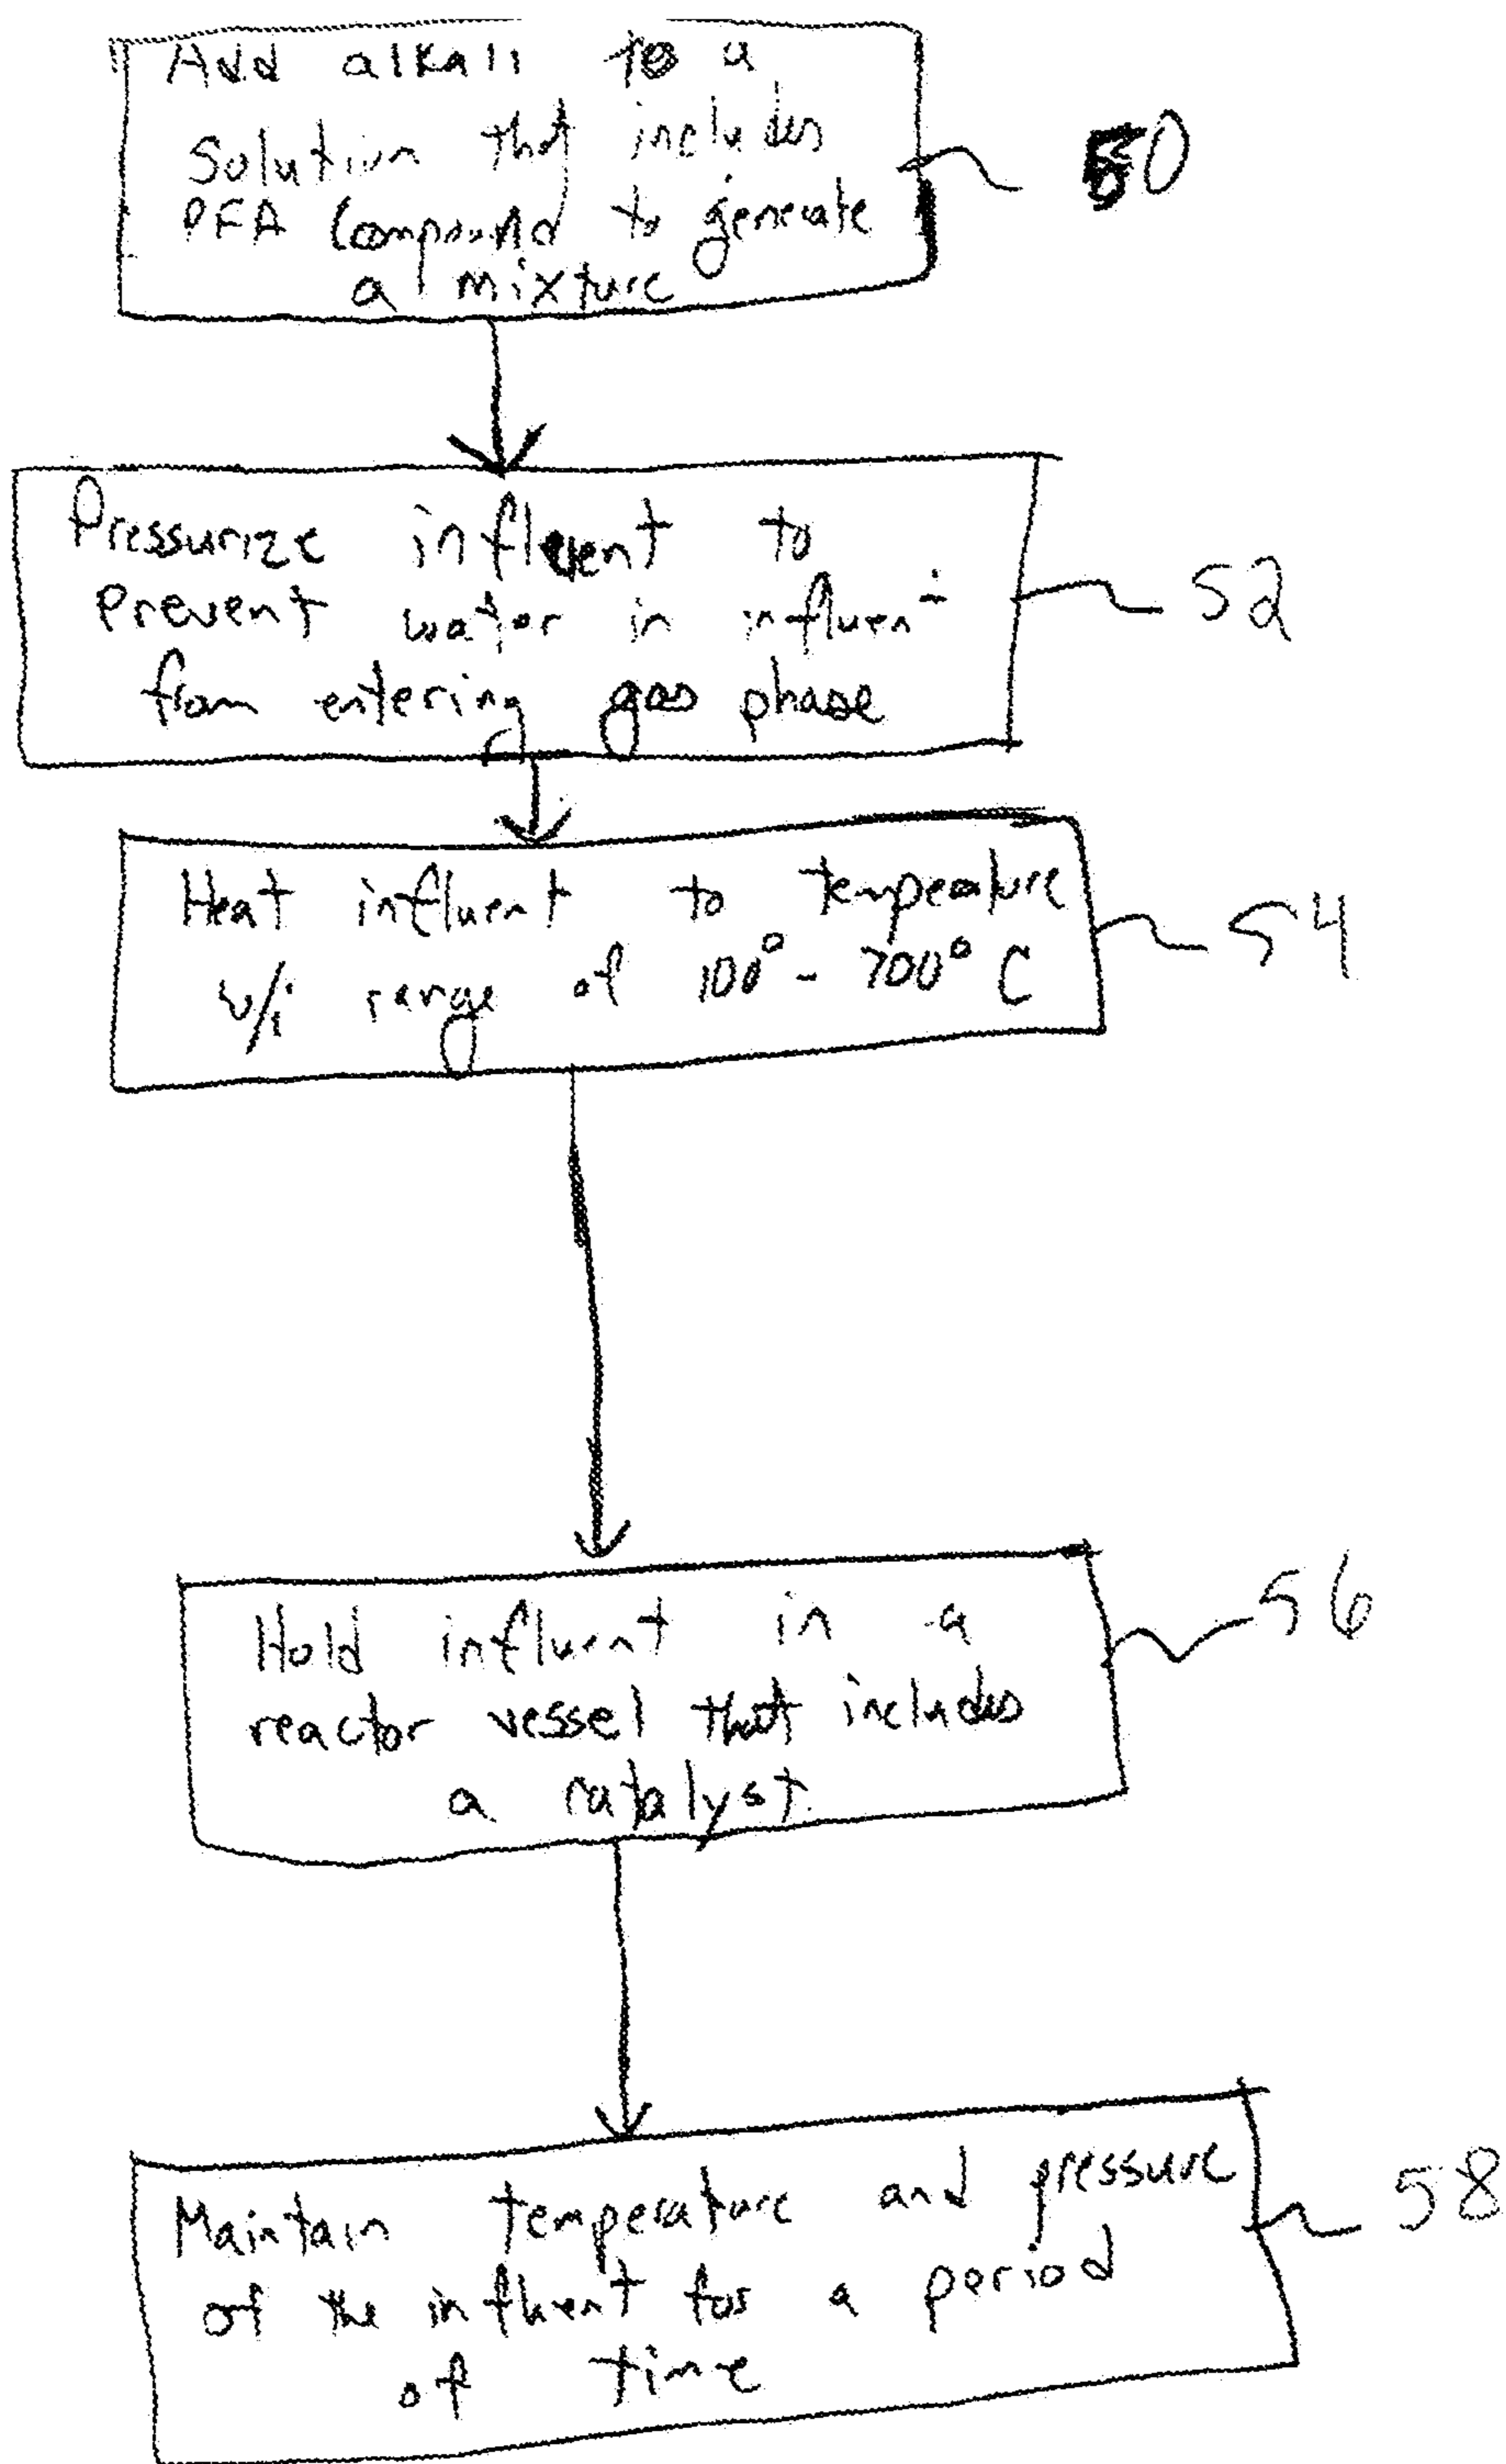 Add alkali to a
solution that includes
PFA compound to generate
a mixture
50
Pressurize influent to
prevent water in influent
from entering gas phase
52
Heat influent to temperature
w/i range of 100° - 700° C
54
Hold influent in a
reactor vessel that includes
a catalyst.
56
Maintain temperature and pressure
of the influent for a period
of time
58